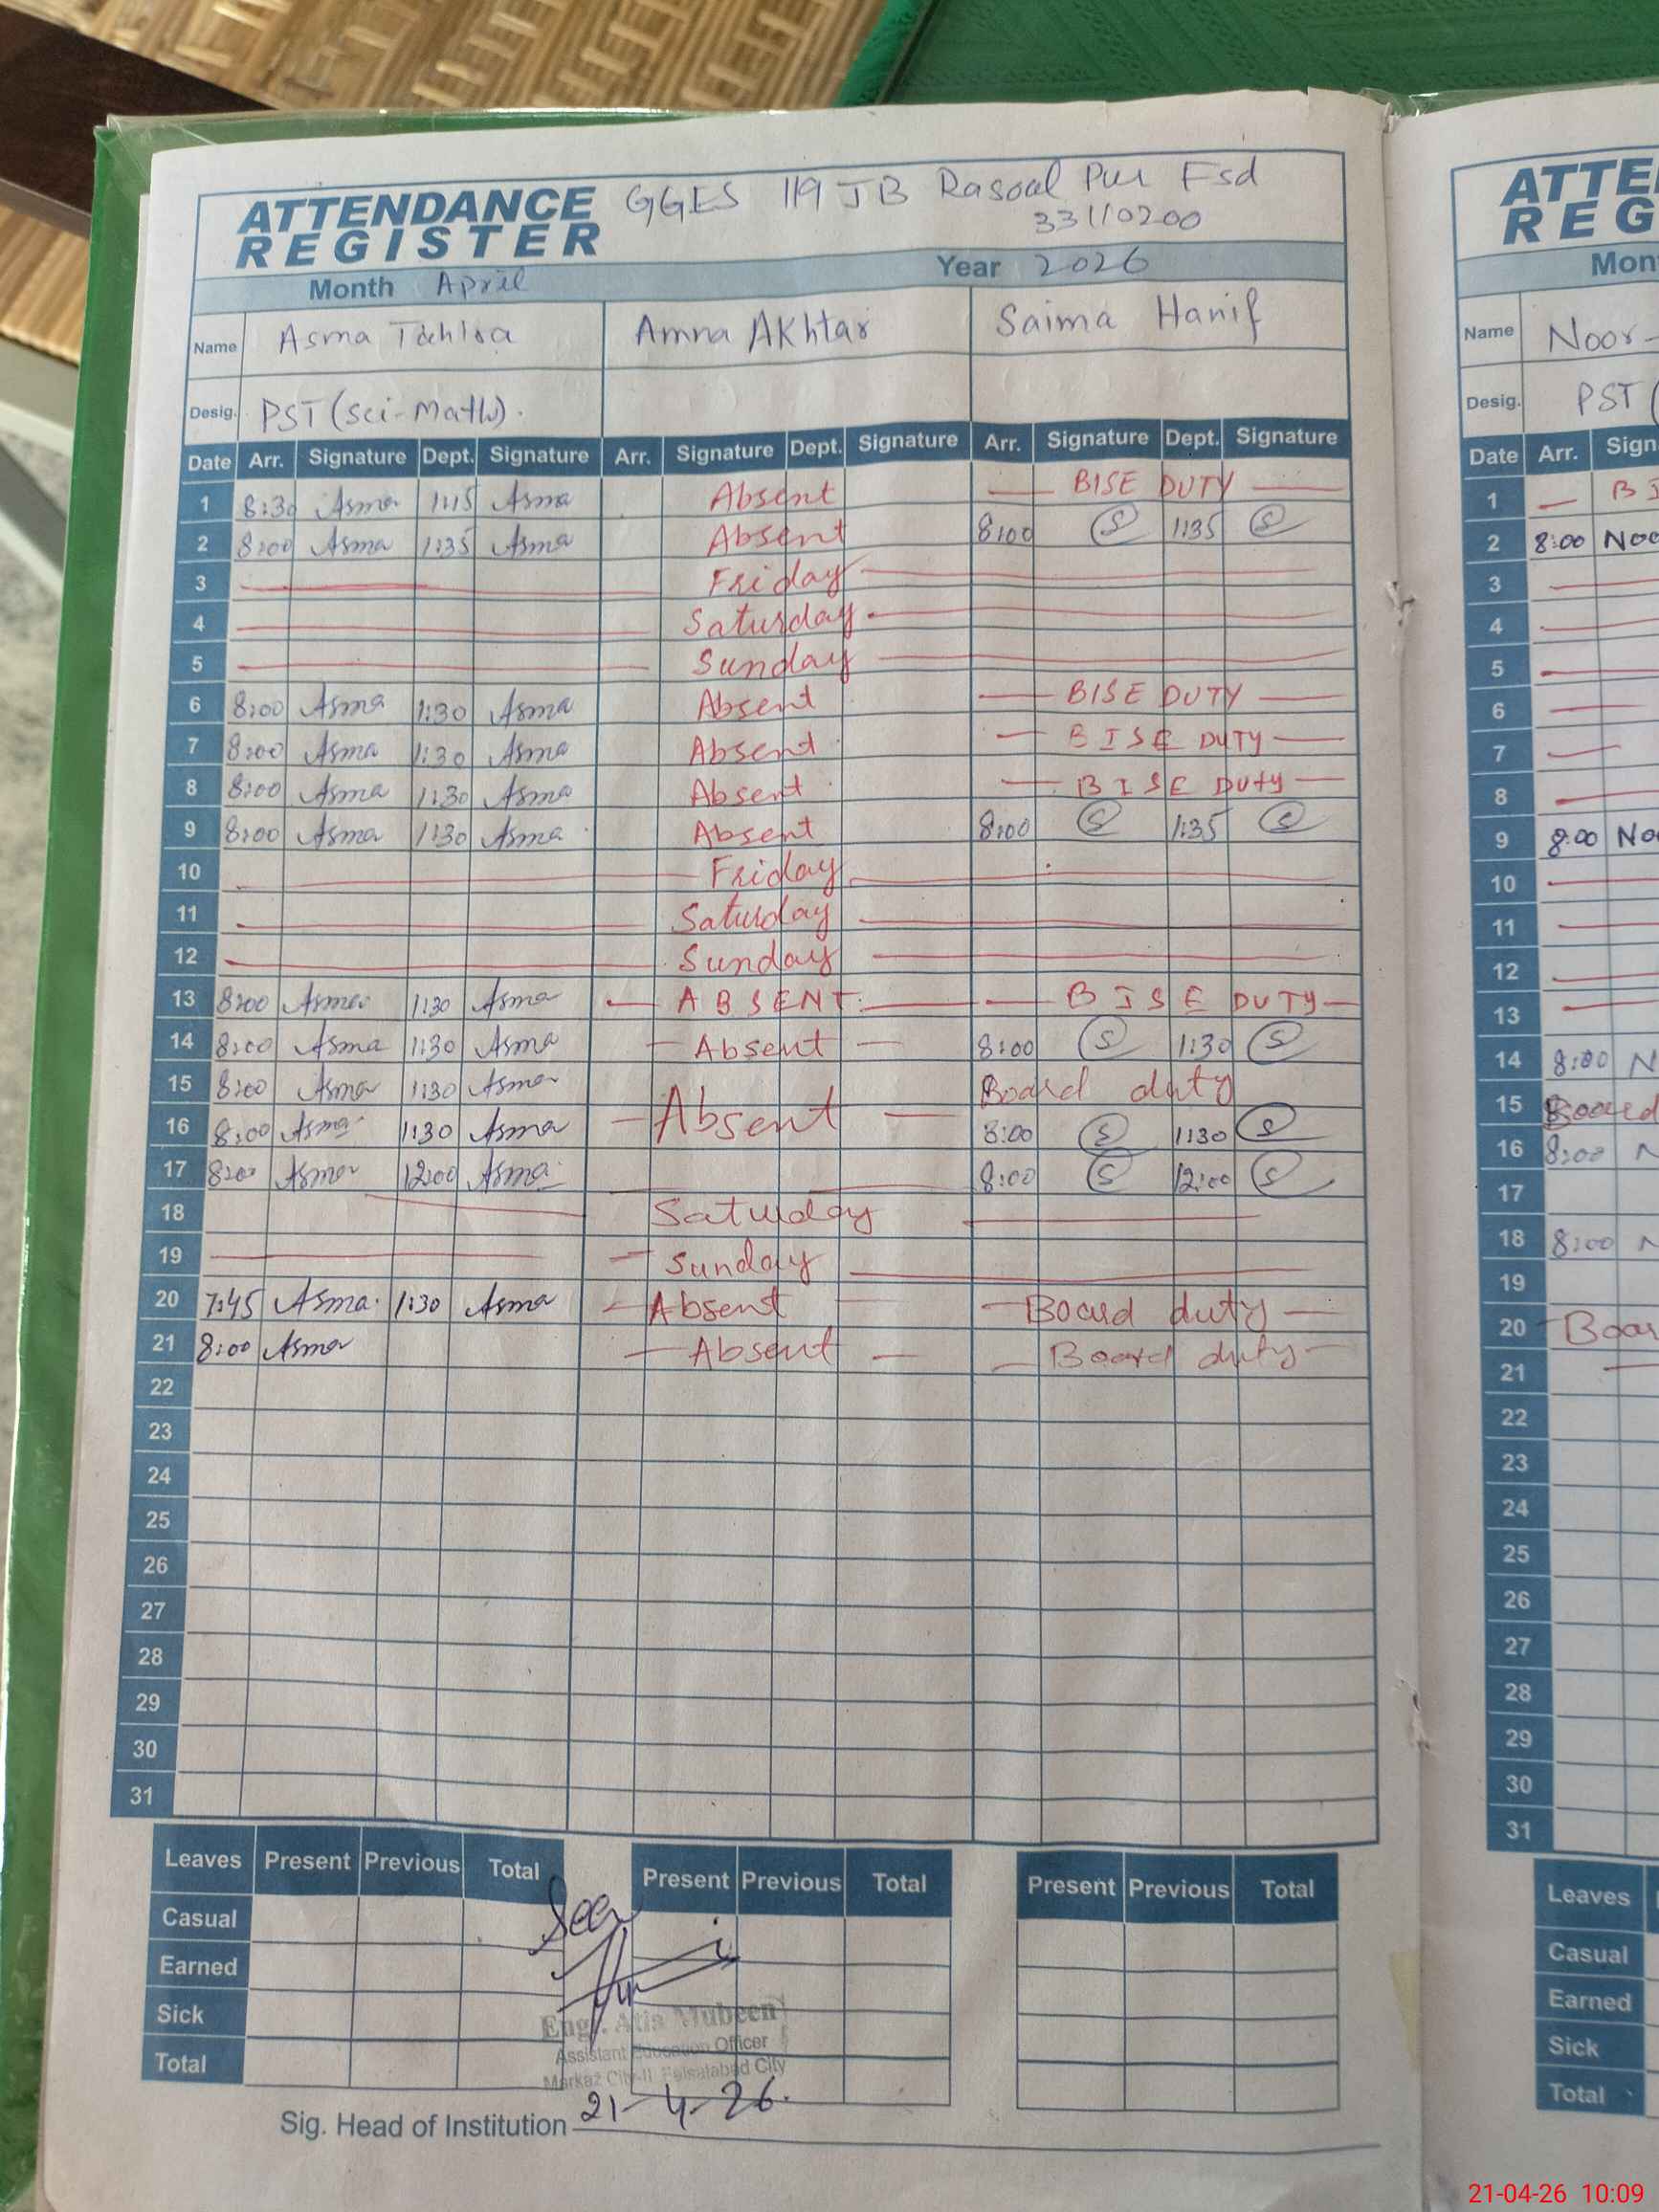 ATTENDANCE REGISTER GGES 119 JB Rasool Pur Fsd
33110200
Month April Year 2026
Name Asma Tahira Amna Akhtar Saima Hanif
Desig. PST (Sci-Math).
Date Arr. Signature Dept. Signature Arr. Signature Dept. Signature Arr. Signature Dept. Signature
1 8:30 Asma 1:15 Asma Absent BISE DUTY
2 8:00 Asma 1:35 Asma Absent 8:00 S 1:35 S
3 Friday
4 Saturday
5 Sunday
6 8:00 Asma 1:30 Asma Absent BISE DUTY
7 8:00 Asma 1:30 Asma Absent BISE DUTY
8 8:00 Asma 1:30 Asma Absent BISE DUTY
9 8:00 Asma 1:30 Asma Absent 8:00 S 1:35 S
10 Friday
11 Saturday
12 Sunday
13 8:00 Asma 1:30 Asma ABSENT BISE DUTY
14 8:00 Asma 1:30 Asma Absent 8:00 S 1:30 S
15 8:00 Asma 1:30 Asma Board duty
16 8:00 Asma 1:30 Asma Absent 8:00 S 1:30 S
17 8:00 Asma 12:00 Asma 8:00 S 12:00 S
18 Saturday
19 Sunday
20 7:45 Asma 1:30 Asma Absent Board duty
21 8:00 Asma Absent Board duty
22
23
24
25
26
27
28
29
30
31
Leaves Present Previous Total Present Previous Total Present Previous Total
Casual
Earned
Sick
Total
Seen
Engr. Mubeen
Assistant Education Officer
Markaz City-II Faisalabad City
Sig. Head of Institution 21-4-26
ATTE
REG
Mon
Name Noor-
Desig. PST (
Date Arr. Sign
1 BI
2 8:00 Noo
3
4
5
6
7
8
9 8:00 No
10
11
12
13
14 8:00 N
15 Board
16 8:00 N
17
18 8:00 N
19
20 Boar
21
22
23
24
25
26
27
28
29
30
31
Leaves
Casual
Earned
Sick
Total
21-04-26 10:09